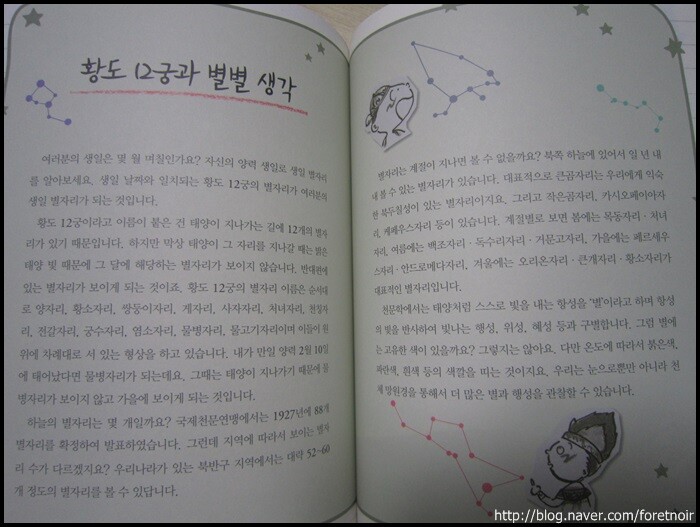 황도 12궁과 별별 생각
여러분의 생일은 몇 월 며칠인가요? 자신의 양력 생일로 생일 별자리
를 알아보세요. 생일 날짜와 일치되는 황도 12궁의 별자리가 여러분의
생일 별자리가 되는 것입니다.
황도 12궁이라고 이름이 붙은 건 태양이 지나가는 길에 12개의 별자
리가 있기 때문입니다. 하지만 막상 태양이 그 자리를 지나갈 때는 밝은
태양 빛 때문에 그 달에 해당하는 별자리가 보이지 않습니다. 반대편에
있는 별자리가 보이게 되는 것이죠. 황도 12궁의 별자리 이름은 순서대
로 양자리, 황소자리, 쌍둥이자리, 게자리, 사자자리, 처녀자리, 천칭자
리, 전갈자리, 궁수자리, 염소자리, 물병자리, 물고기자리이며 이들이 원
위에 차례대로 서 있는 형상을 하고 있습니다. 내가 만일 양력 2월 10일
에 태어났다면 물병자리가 되는데요, 그때는 태양이 지나가기 때문에 물
병자리가 보이지 않고 가을에 보이게 되는 것입니다.
하늘의 별자리는 몇 개일까요? 국제천문연맹에서는 1927년에 88개
별자리를 확정하여 발표하였습니다. 그런데 지역에 따라서 보이는 별자
리 수가 다르겠지요? 우리나라가 있는 북반구 지역에서는 대략 52~60
개 정도의 별자리를 볼 수 있답니다.
별자리는 계절이 지나면 볼 수 없을까요? 북쪽 하늘에 있어서 일 년 내
내 볼 수 있는 별자리가 있습니다. 대표적으로 큰곰자리는 우리에게 익숙
한 북두칠성이 있는 별자리이지요. 그리고 작은곰자리, 카시오페이아자
리, 케페우스자리 등이 있습니다. 계절별로 보면 봄에는 목동자리·처녀
자리, 여름에는 백조자리·독수리자리·거문고자리, 가을에는 페르세우
스자리·안드로메다자리, 겨울에는 오리온자리·큰개자리·황소자리가
대표적인 별자리입니다.
천문학에서는 태양처럼 스스로 빛을 내는 항성을 '별'이라고 하며 항성
의 빛을 반사하여 빛나는 행성, 위성, 혜성 등과 구별합니다. 그럼 별에
는 고유한 색이 있을까요? 그렇지는 않아요. 다만 온도에 따라서 붉은색,
파란색, 흰색 등의 색깔을 띠는 것이지요. 우리는 눈으로뿐만 아니라 천
체 망원경을 통해서 더 많은 별과 행성을 관찰할 수 있습니다.
http://blog.naver.com/foretnoir